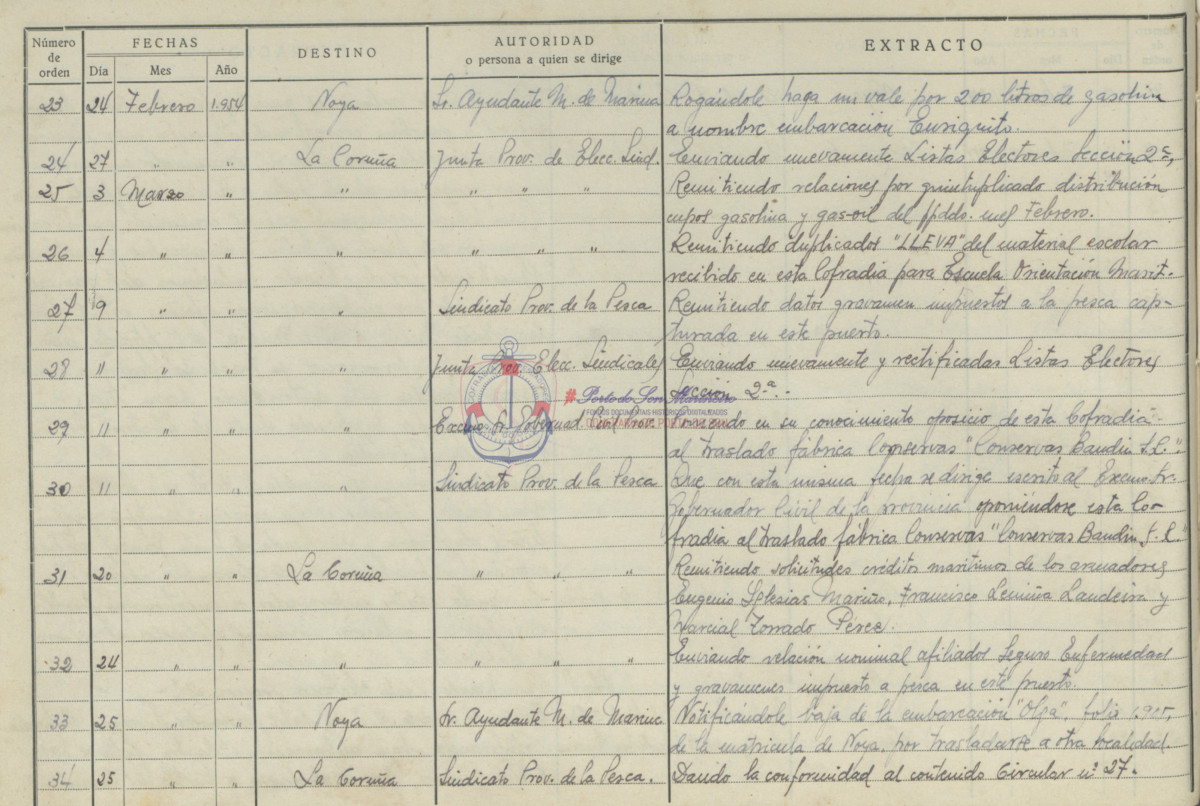 Número de orden FECHAS DESTINO AUTORIDAD o persona a quien se dirige EXTRACTO
Día Mes Año
23 24 Febrero 1.954 Noya Sr. Ayudante M. de Marina Rogándole haga un vale por 200 litros de gasolina
a nombre embarcación Enriquito.
24 27 " " La Coruña Junta Prov. de Elecc. Sind. Enviando nuevamente Listas Electores Sección 2ª,
25 3 Marzo " " " " " Remitiendo relaciones por quintuplicado distribución
cupos gasolina y gas-oil del ppdo. mes Febrero.
26 4 " " " " " " Remitiendo duplicados "LLEVA" del material escolar
recibido en esta Cofradia para Escuela Orientación Marit.
27 9 " " " Sindicato Prov. de la Pesca Remitiendo datos gravamen impuestos a la pesca cap-
turada en este puerto.
28 11 " " " Junta Prov. Elecc. Sindicales Enviando nuevamente y rectificadas Listas Electores
Sección 2ª.-
#Porto do Son Marineiro
FONDOS DOCUMENTAIS HISTÓRICOS DIXITALIZADOS
29 11 " " " Excmo. Sr. Gobernad. Civil Prov. Poniendo en su conocimiento oposicio de esta Cofradia
al traslado fábrica Conservas "Conservas Baudin S.L."
30 11 " " " Sindicato Prov. de la Pesca Que con esta misma fecha se dirige escrito al Excmo. Sr.
Gobernador Civil de la provincia oponiéndose esta Co-
fradia al traslado fábrica Conservas "Conservas Baudin S. L."
31 20 " " La Coruña " " " Remitiendo solicitudes créditos maritimos de los armadores
Eugenio Iglesias Mariño, Francisco Lemiña Laudeira y
Marcial Torrado Pérez.
32 24 " " " " " " Enviando relación nominal afiliados Seguro Enfermedad
y gravamenes impuesto a pesca en este puerto.
33 25 " " Noya Sr. Ayudante M. de Marina Notificándole baja de la embarcación "Olga", folio
de la matricula de Noya, por trasladarse a otra localidad.
34 25 La Coruña Sindicato Prov. de la Pesca. Dando la conformidad al contenido Circular nº 27.